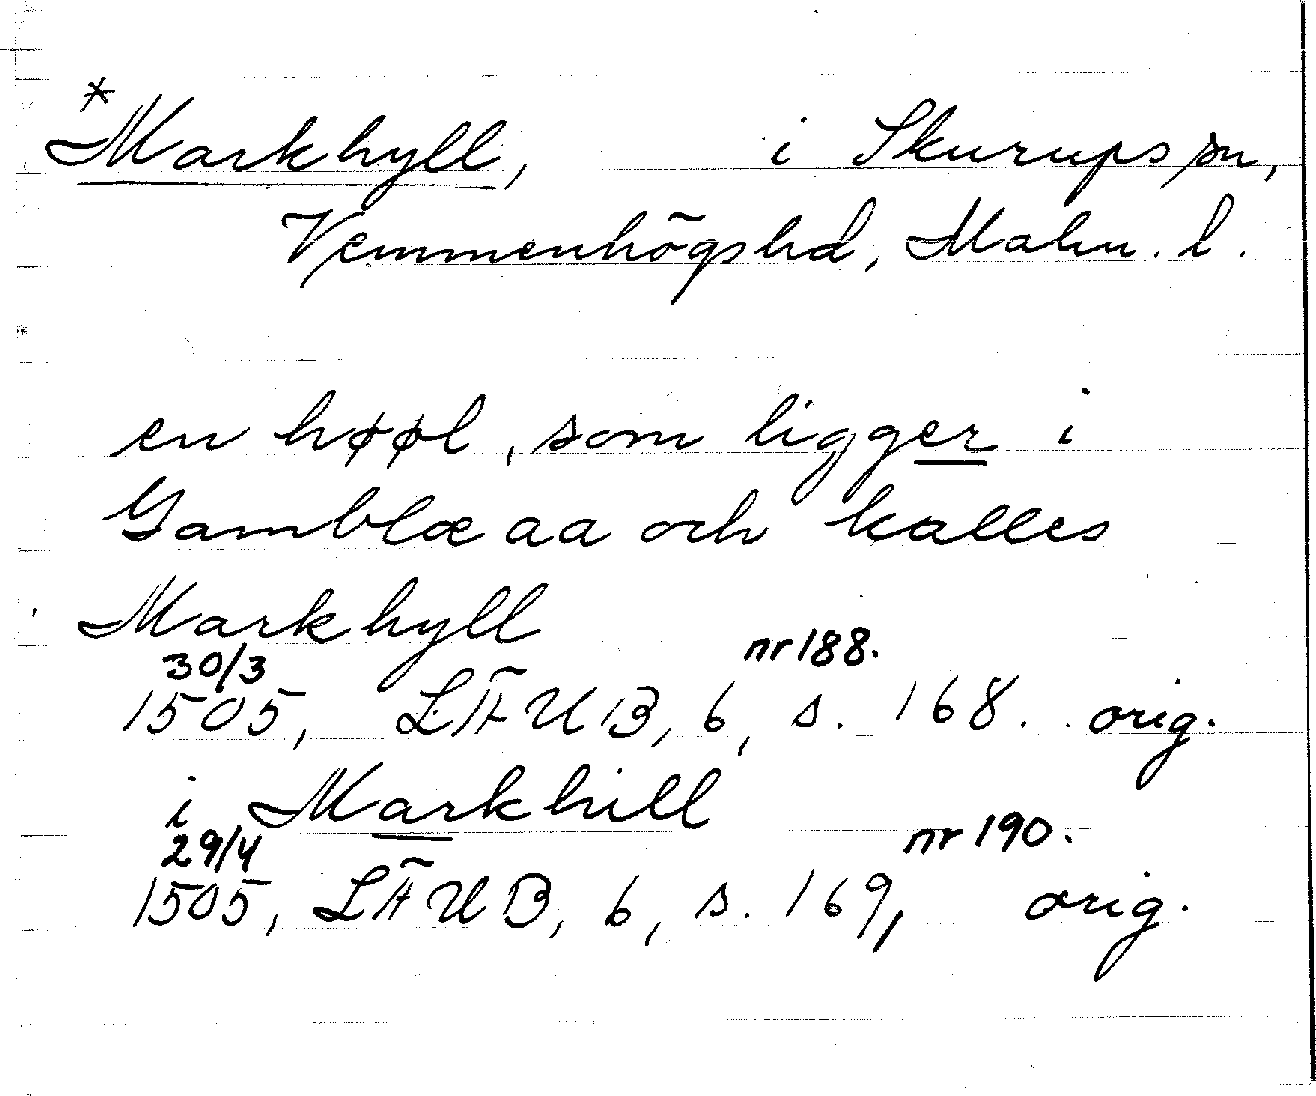 *Markhyll, i Skurups sn,
Vemmenhögs hd, Malm. l.
en høøl, som ligger i
Gamblæ aa och kalles
Markhyll
30/3 nr 188.
1505, LÄUB, 6, s. 168. orig.
i Markhill
29/4 nr 190.
1505, LÄUB, 6, s. 169, orig.